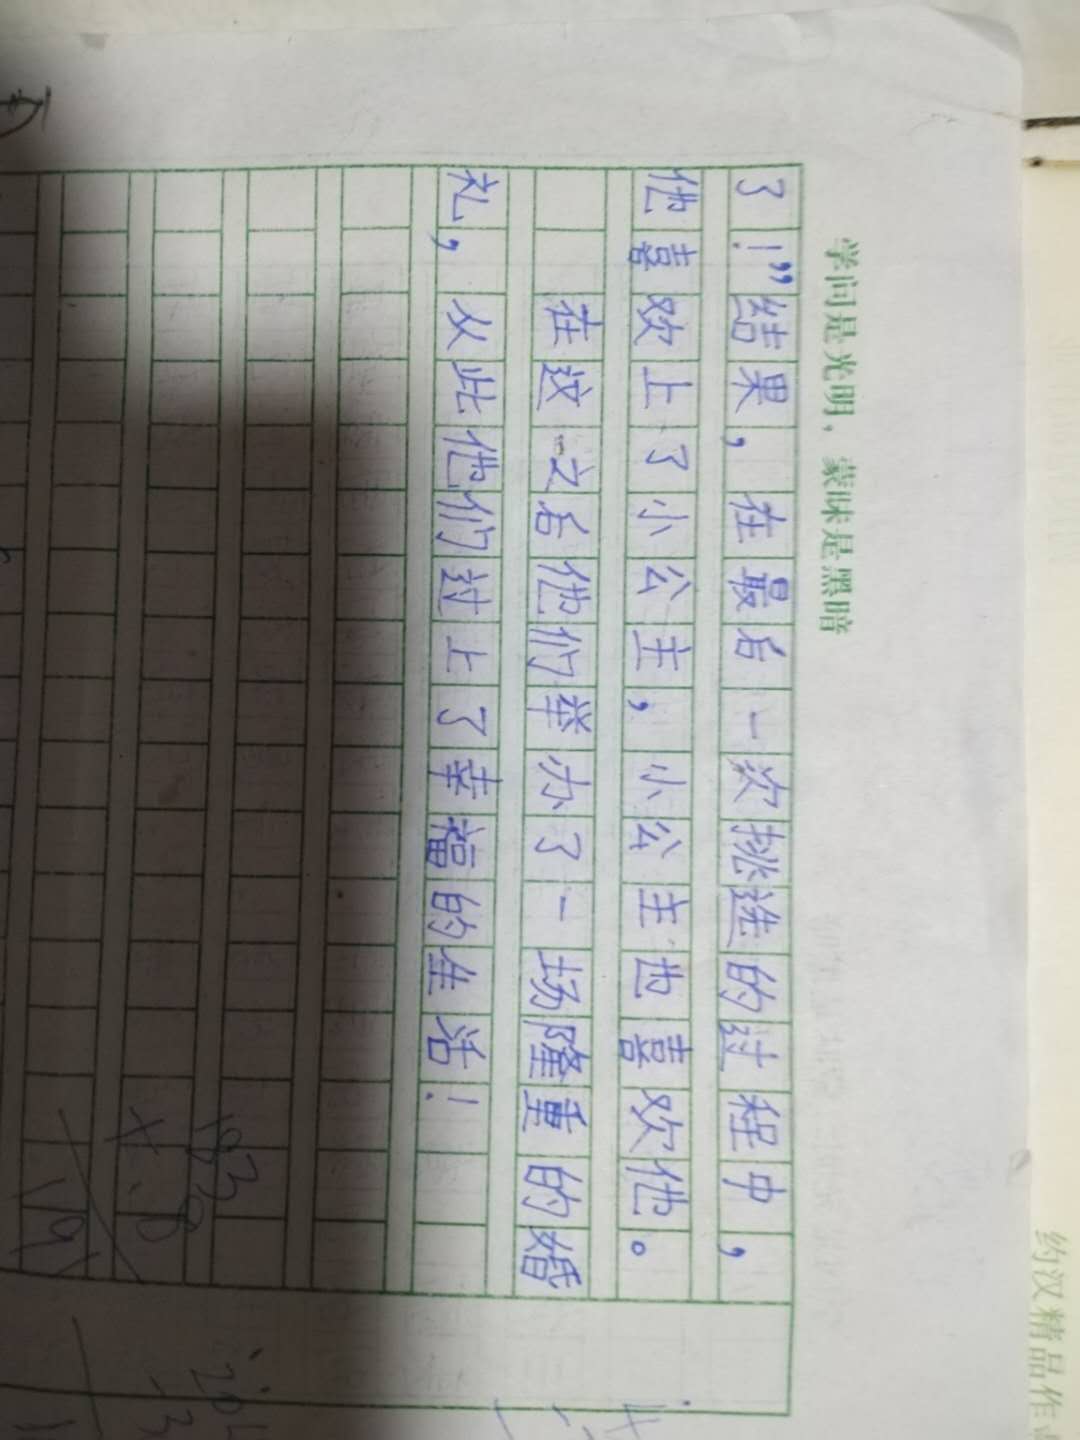 学问是光明，蒙昧是黑暗
了！”结果，在最后一次挑选的过程中，
他喜欢上了小公主，小公主也喜欢他。
在这之后他们举办了一场隆重的婚
礼，从此他们过上了幸福的生活！
约汉精品作业
193